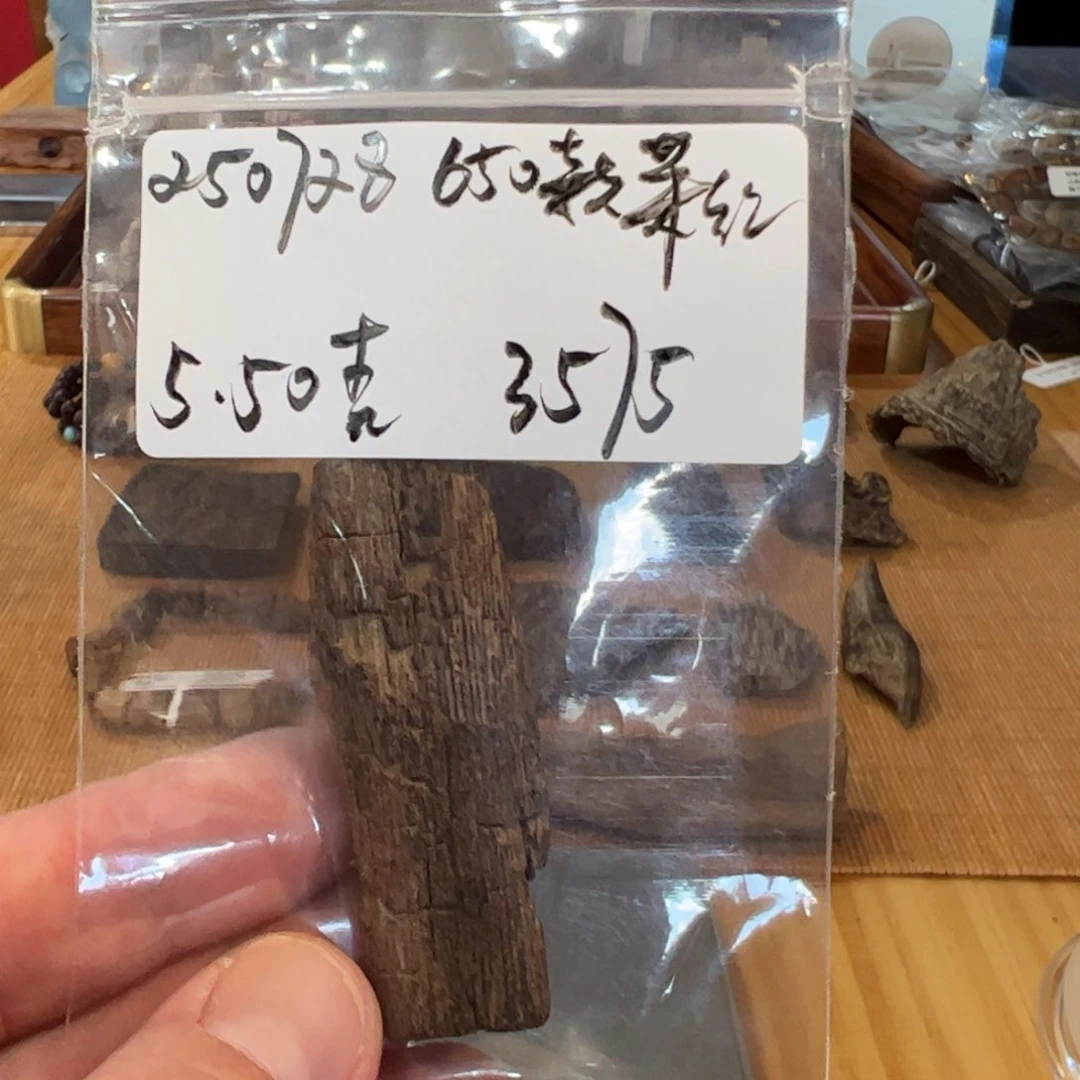 250728 650款
5.50克 3575